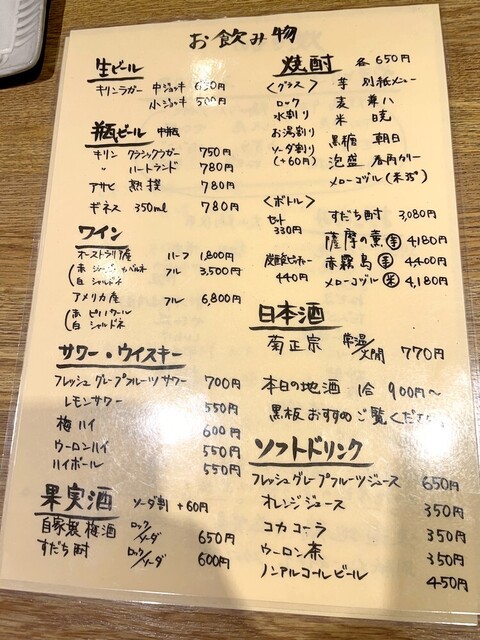 お飲み物
生ビール
キリンラガー 中ジョッキ 650円
小ジョッキ 500円
瓶ビール 中瓶
キリン クラシックラガー 750円
〃 ハートランド 780円
アサヒ 熟撰 780円
ギネス 350ml 780円
ワイン
オーストラリア産 ハーフ 1,800円
(赤 フル 3,500円
白 シャルドネ
アメリカ産 フル 6,800円
(赤 ピノノワール
白 シャルドネ
サワー・ウイスキー
フレッシュグレープフルーツサワー 700円
レモンサワー 550円
梅ハイ 600円
ウーロンハイ 550円
ハイボール 550円
果実酒 ソーダ割 +60円
自家製梅酒 ロック/ソーダ 650円
すだち酎 ロック/ソーダ 600円
焼酎 各650円
<グラス> 芋 別紙メニュー
ロック 麦 兼八
水割り 米 暁
お湯割り 黒糖 朝日
ソーダ割り 泡盛 春雨カリー
(+60円) メローコヅル(米35°)
<ボトル>
セット 330円 すだち酎 3,080円
薩摩の薫 芋 4,180円
赤霧島 芋 4,400円
440円 メローコヅル 米 4,180円
日本酒
菊正宗 常温/火燗 770円
本日の地酒 1合 900円~
黒板おすすめご覧ください。
ソフトドリンク
フレッシュグレープフルーツジュース 650円
オレンジジュース 350円
コカコーラ 350円
ウーロン茶 350円
ノンアルコールビール 450円